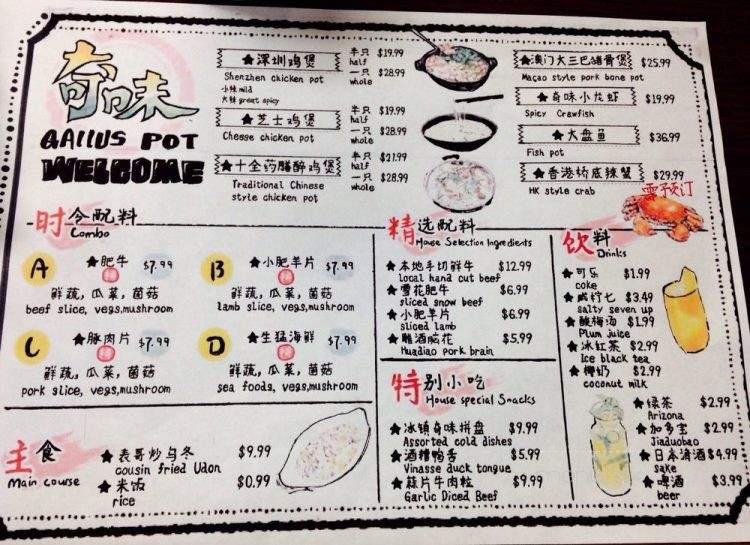 奇味
GALLUS POT
WELCOME
★深圳鸡煲 半只 $19.99
Shenzhen chicken pot half
小辣 mild 一只 $28.99
大辣 great spicy whole
★芝士鸡煲 半只 $19.99
Cheese chicken pot half
一只 $28.99
whole
★十全药膳醉鸡煲 半只 $21.99
Traditional Chinese half
style chicken pot 一只 $28.99
whole
★澳门大三巴猪骨煲 $25.99
Macao style pork bone pot
★奇味小龙虾 $19.99
Spicy Crawfish
★大盘鱼 $36.99
Fish pot
★香港桥底辣蟹 $29.99
HK style crab 需预订
时令配料
Combo
A ★肥牛 $7.99
鲜蔬,瓜菜,菌菇
beef slice, vegs,mushroom
B ★小肥羊片 $7.99
鲜蔬,瓜菜,菌菇
lamb slice, vegs,mushroom
C ★豚肉片 $7.99
鲜蔬,瓜菜,菌菇
pork slice, vegs,mushroom
D ★生猛海鲜 $7.99
鲜蔬,瓜菜,菌菇
sea foods, vegs,mushroom
主食
Main course
★表哥炒乌冬 $9.99
cousin fried Udon
★米饭 $0.99
rice
精选配料
House Selection Ingredients
★本地手切鲜牛 $12.99
local hand cut beef
★雪花肥牛 $6.99
sliced snow beef
★小肥羊片 $6.99
sliced lamb
★雕酒脑花 $5.99
Huadiao pork brain
特别小吃
House special Snacks
★冰镇奇味拼盘 $9.99
Assorted cold dishes
★酒糟鸭舌 $5.99
Vinasse duck tongue
★蒜片牛肉粒 $9.99
Garlic Diced Beef
饮料
Drinks
★可乐 $1.99
coke
★咸柠七 $3.49
salty seven up
★酸梅汤 $1.99
Plum juice
★冰红茶 $2.99
Ice black tea
★椰奶 $2.99
coconut milk
★绿茶 $2.99
Arizona
★加多宝 $2.99
Jiaduobao
★日本清酒 $4.99
sake
★啤酒 $3.99
beer